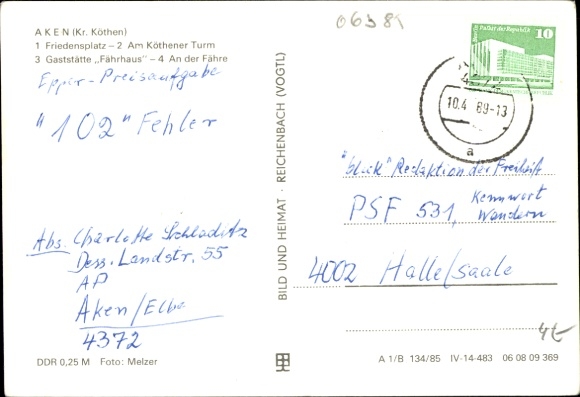 06389
AKEN (Kr. Köthen)
1 Friedensplatz – 2 Am Köthener Turm
3 Gaststätte „Fährhaus" – 4 An der Fähre
Epper-Preisaufgabe
"102" Fehler
Abs. Charlotte Schladitz
Dess. Landstr. 55
AP
Aken/Elbe
4372
DDR 0,25 M Foto: Melzer
BILD UND HEIMAT · REICHENBACH (VOGTL)
Palast der Republik
10
10.4 89-13
a
"blick" Redaktion der Freiheit
PSF 531, Kennwort
Wandern
4002 Halle/Saale
4€
A 1/B 134/85 IV-14-483 06 08 09 369